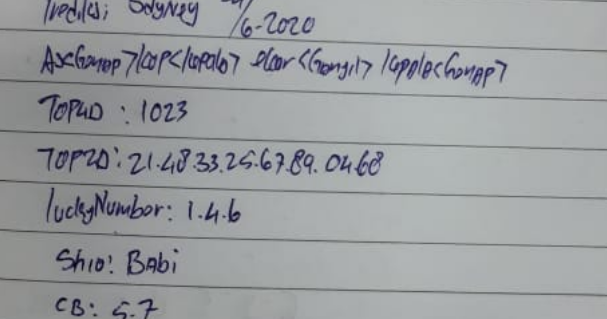 Prediksi Sydney /6-2020
As<Genap>/cop</kepala> ekor<Ganjil> /kepala<Genap>
TOP4D : 1023
TOP2D: 21.48.33.25.67.89.04.68
luckyNumber: 1.4.6
Shio: Babi
CB: 5.7